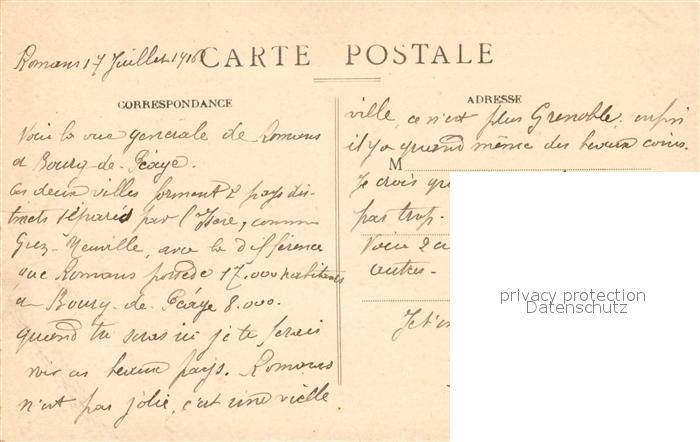 Romans 17 Juillet 1916
CARTE POSTALE
CORRESPONDANCE
Voici la vue generale de Romans
et Bourg-de-Péage.
Ces deux villes forment 2 pays dis-
tincts séparés par l'Isère, comme
Grez-Neuville, avec la différence
que Romans possède 17.000 habitants
et Bourg-de-Péage 8.000.
quand tu seras ici je te ferais
voir ces beaux pays. Romans
n'est pas jolie, c'est une vieille
ADRESSE
ville, ce n'est plus Grenoble. enfin
il y a quand même des beaux coins.
M
Je crois
pas trop.
Voici 2
autres-
Je t'
privacy protection
Datenschutz